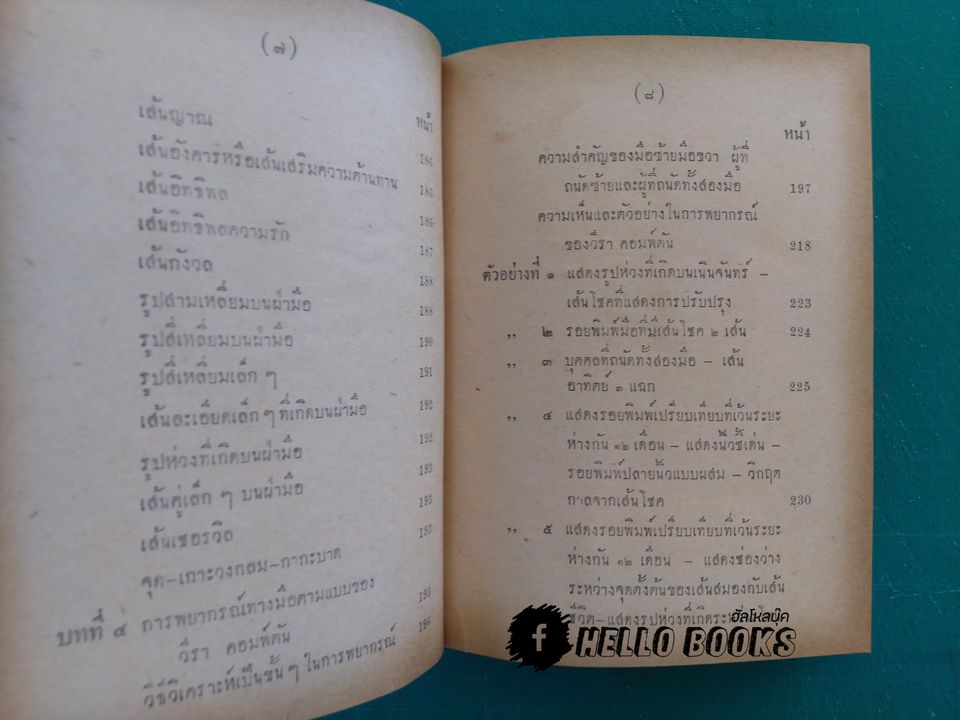 (๗)
หน้า
เส้นญาณ
185
เส้นอังคารหรือเส้นเสริมความต้านทาน
186
เส้นอิทธิพล
186
เส้นอิทธิพลความรัก
187
เส้นกังวล
188
รูปสามเหลี่ยมบนฝ่ามือ
188
รูปสี่เหลี่ยมบนฝ่ามือ
190
รูปสี่เหลี่ยมเล็ก ๆ
191
เส้นละเอียดเล็ก ๆ ที่เกิดบนฝ่ามือ
192
รูปห่วงที่เกิดบนฝ่ามือ
192
เส้นคู่เล็ก ๆ บนฝ่ามือ
193
เส้นเชอรวิล
193
จุด–เกาะวงกลม–กากะบาด
193
บทที่ ๔ การพยากรณ์ทางมือตามแบบของ
วีรา คอมพ์ตัน
195
วิธีวิเคราะห์เป็นขั้น ๆ ในการพยากรณ์
196
(๘)
หน้า
ความสำคัญของมือซ้ายมือขวา ผู้ที่
ถนัดซ้ายและผู้ที่ถนัดทั้งสองมือ 197
ความเห็นและตัวอย่างในการพยากรณ์
ของวีรา คอมพ์ตัน 218
ตัวอย่างที่ ๑ แสดงรูปห่วงที่เกิดบนเนินจันทร์ –
เส้นโชคที่แสดงการปรับปรุง 223
,, ๒ รอยพิมพ์มือที่มีเส้นโชค ๒ เส้น 224
,, ๓ บุคคลที่ถนัดทั้งสองมือ – เส้น
อาทิตย์ ๓ แฉก 225
,, ๔ แสดงรอยพิมพ์เปรียบเทียบที่เว้นระยะ
ห่างกัน ๑๒ เดือน – แสดงนิ้วชี้เด่น –
รอยพิมพ์ปลายนิ้วแบบผสม – วิกฤต
กาลจากเส้นโชค 230
,, ๕ แสดงรอยพิมพ์เปรียบเทียบที่เว้นระยะ
ห่างกัน ๑๒ เดือน – แสดงช่องว่าง
ระหว่างจุดตั้งต้นของเส้นสมองกับเส้น
ชีวิต–แสดงรูปห่วงที่เกิดระหว่าง
ฮัลโหลบุ๊ค
f HELLO BOOKS